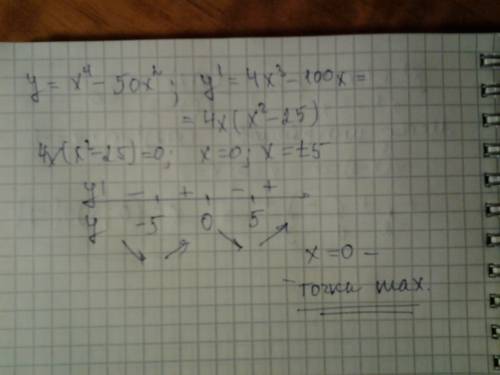 y = x⁴ - 50x²; y' = 4x³ - 100x =
= 4x(x² - 25)
4x(x² - 25) = 0; x = 0; x = ±5
y' - + - +
y -5 0 5
↘ ↗ ↘ ↗
x = 0 -
точка max.